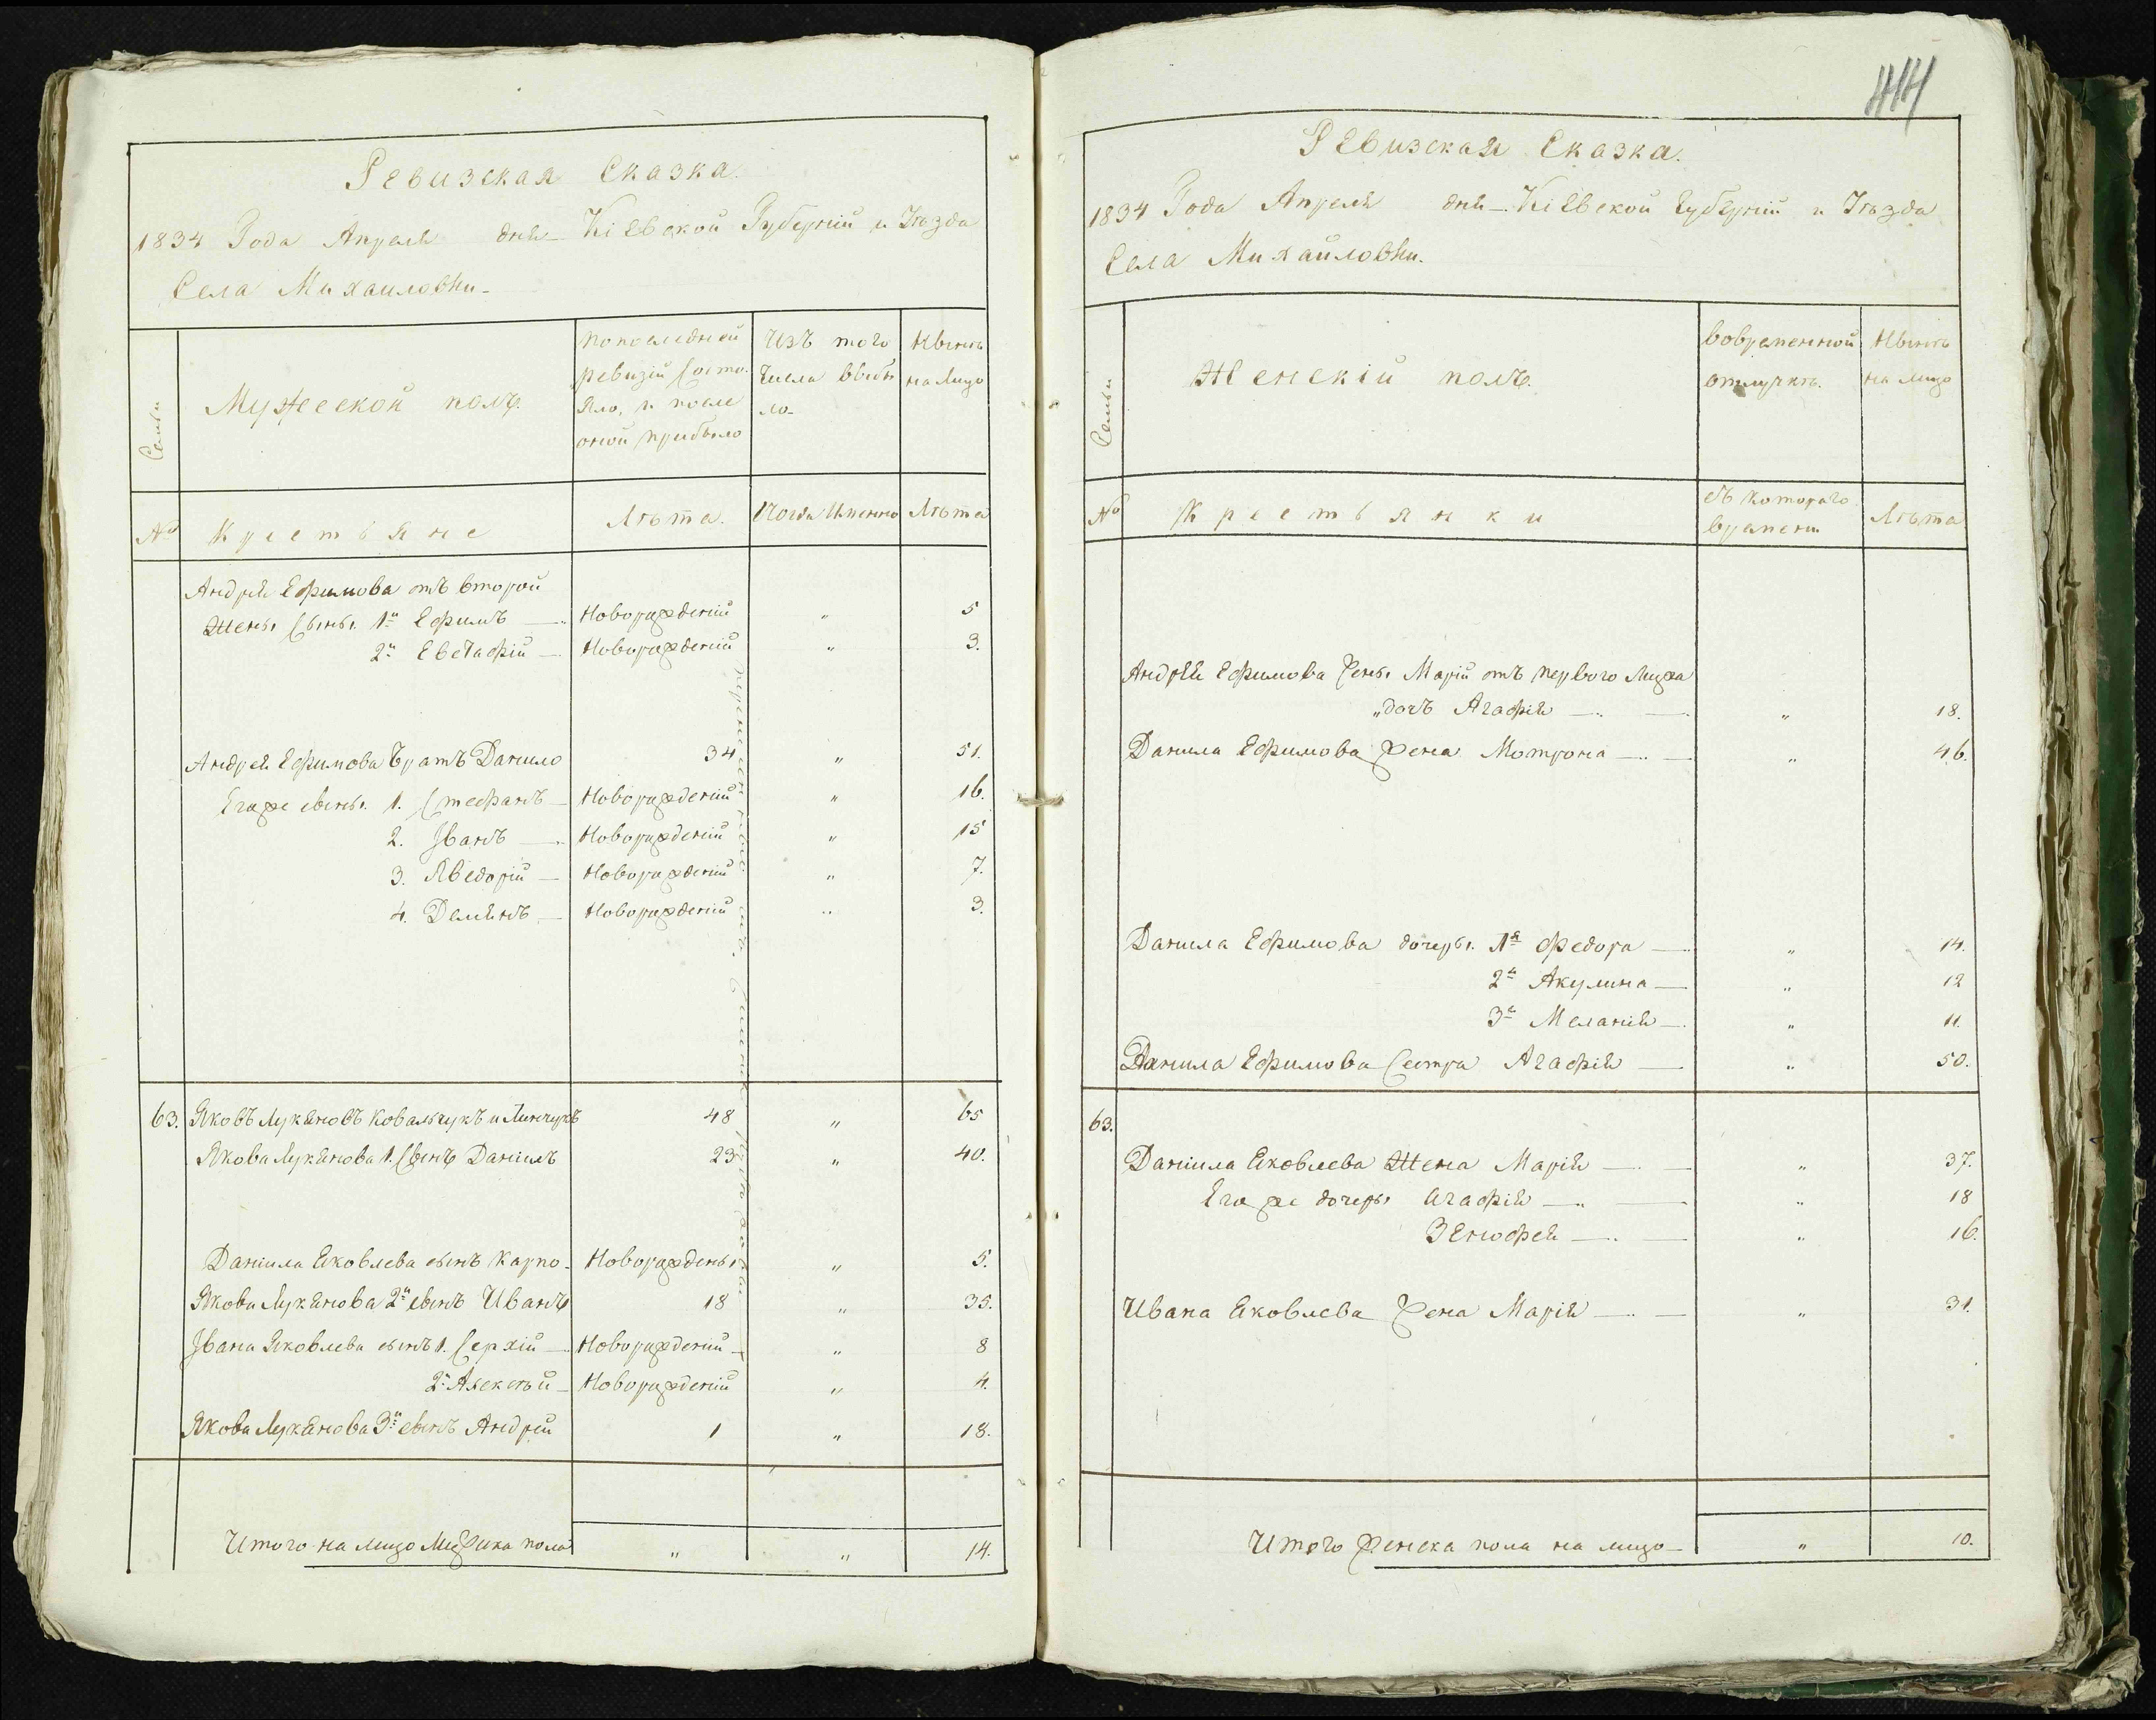 Ревизская Сказка.
1834 Года Апреля дня Кіевской Губерніи и Уѣзда
Села Михайловки
Семьи
Мужеской полъ.
попоследней
ревизіи состо-
яло, и после
оной прибыло
Изъ того
числа выбы
ло.
Нынѣ
на лицо
№
Крестьяне
Лѣта.
Когда Именно
Лѣта
Андрея Ефимова отъ второй
Жены Сыны 1й Ефимъ Новорожденій " 5
2й Евстафій Новорожденій " 3.
Андрея Ефимова Братъ Данило 34 " 51.
Егоже сыны 1. Стефанъ Новорожденій " 16.
2. Іванъ Новорожденій " 15
3. Новорожденій " 7.
4. Демянъ Новорожденій " 3.
63. Яковъ Лукяновъ Ковальчукъ и 48 " 65
Якова Лукянова 1. Сынъ Даніилъ 23 " 40.
Даніила Яковлева сынъ Карпо Новорожденъ " 5.
Якова Лукянова 2й сынъ Иванъ 18 " 35.
Івана Яковлева сынъ 1. Серхій Новорожденій " 8
2й Алексѣй Новорожденій " 4.
Якова Лукянова 3й сынъ Андрій 1 " 18.
Итого на лицо Мужска пола " " 14.
Ревизская Сказка.
1834 Года Апреля дня Кіевской Губерніи и Уѣзда
Села Михайловки.
Семьи
Женскій полъ.
вовременной
отлучкѣ.
Нынѣ
на лицо
№
Крестьянки
съ котораго
времени
Лѣта
Андрея Ефимова Жены Маріи отъ первого Мужа
"дочь Агафія " 18.
Данила Ефимова Жена Мотрона " 46.
Данила Ефимова дочеры 1я Федора " 14.
2я Акулина " 12
3я Меланія " 11.
Данила Ефимова Сестра Агафія " 50.
63.
Даніила Яковлева Жена Марія " 37.
Егоже дочеры Агафія " 18
" 16.
Ивана Яковлева Жена Марія " 31.
Итого Женска пола на лицо " 10.